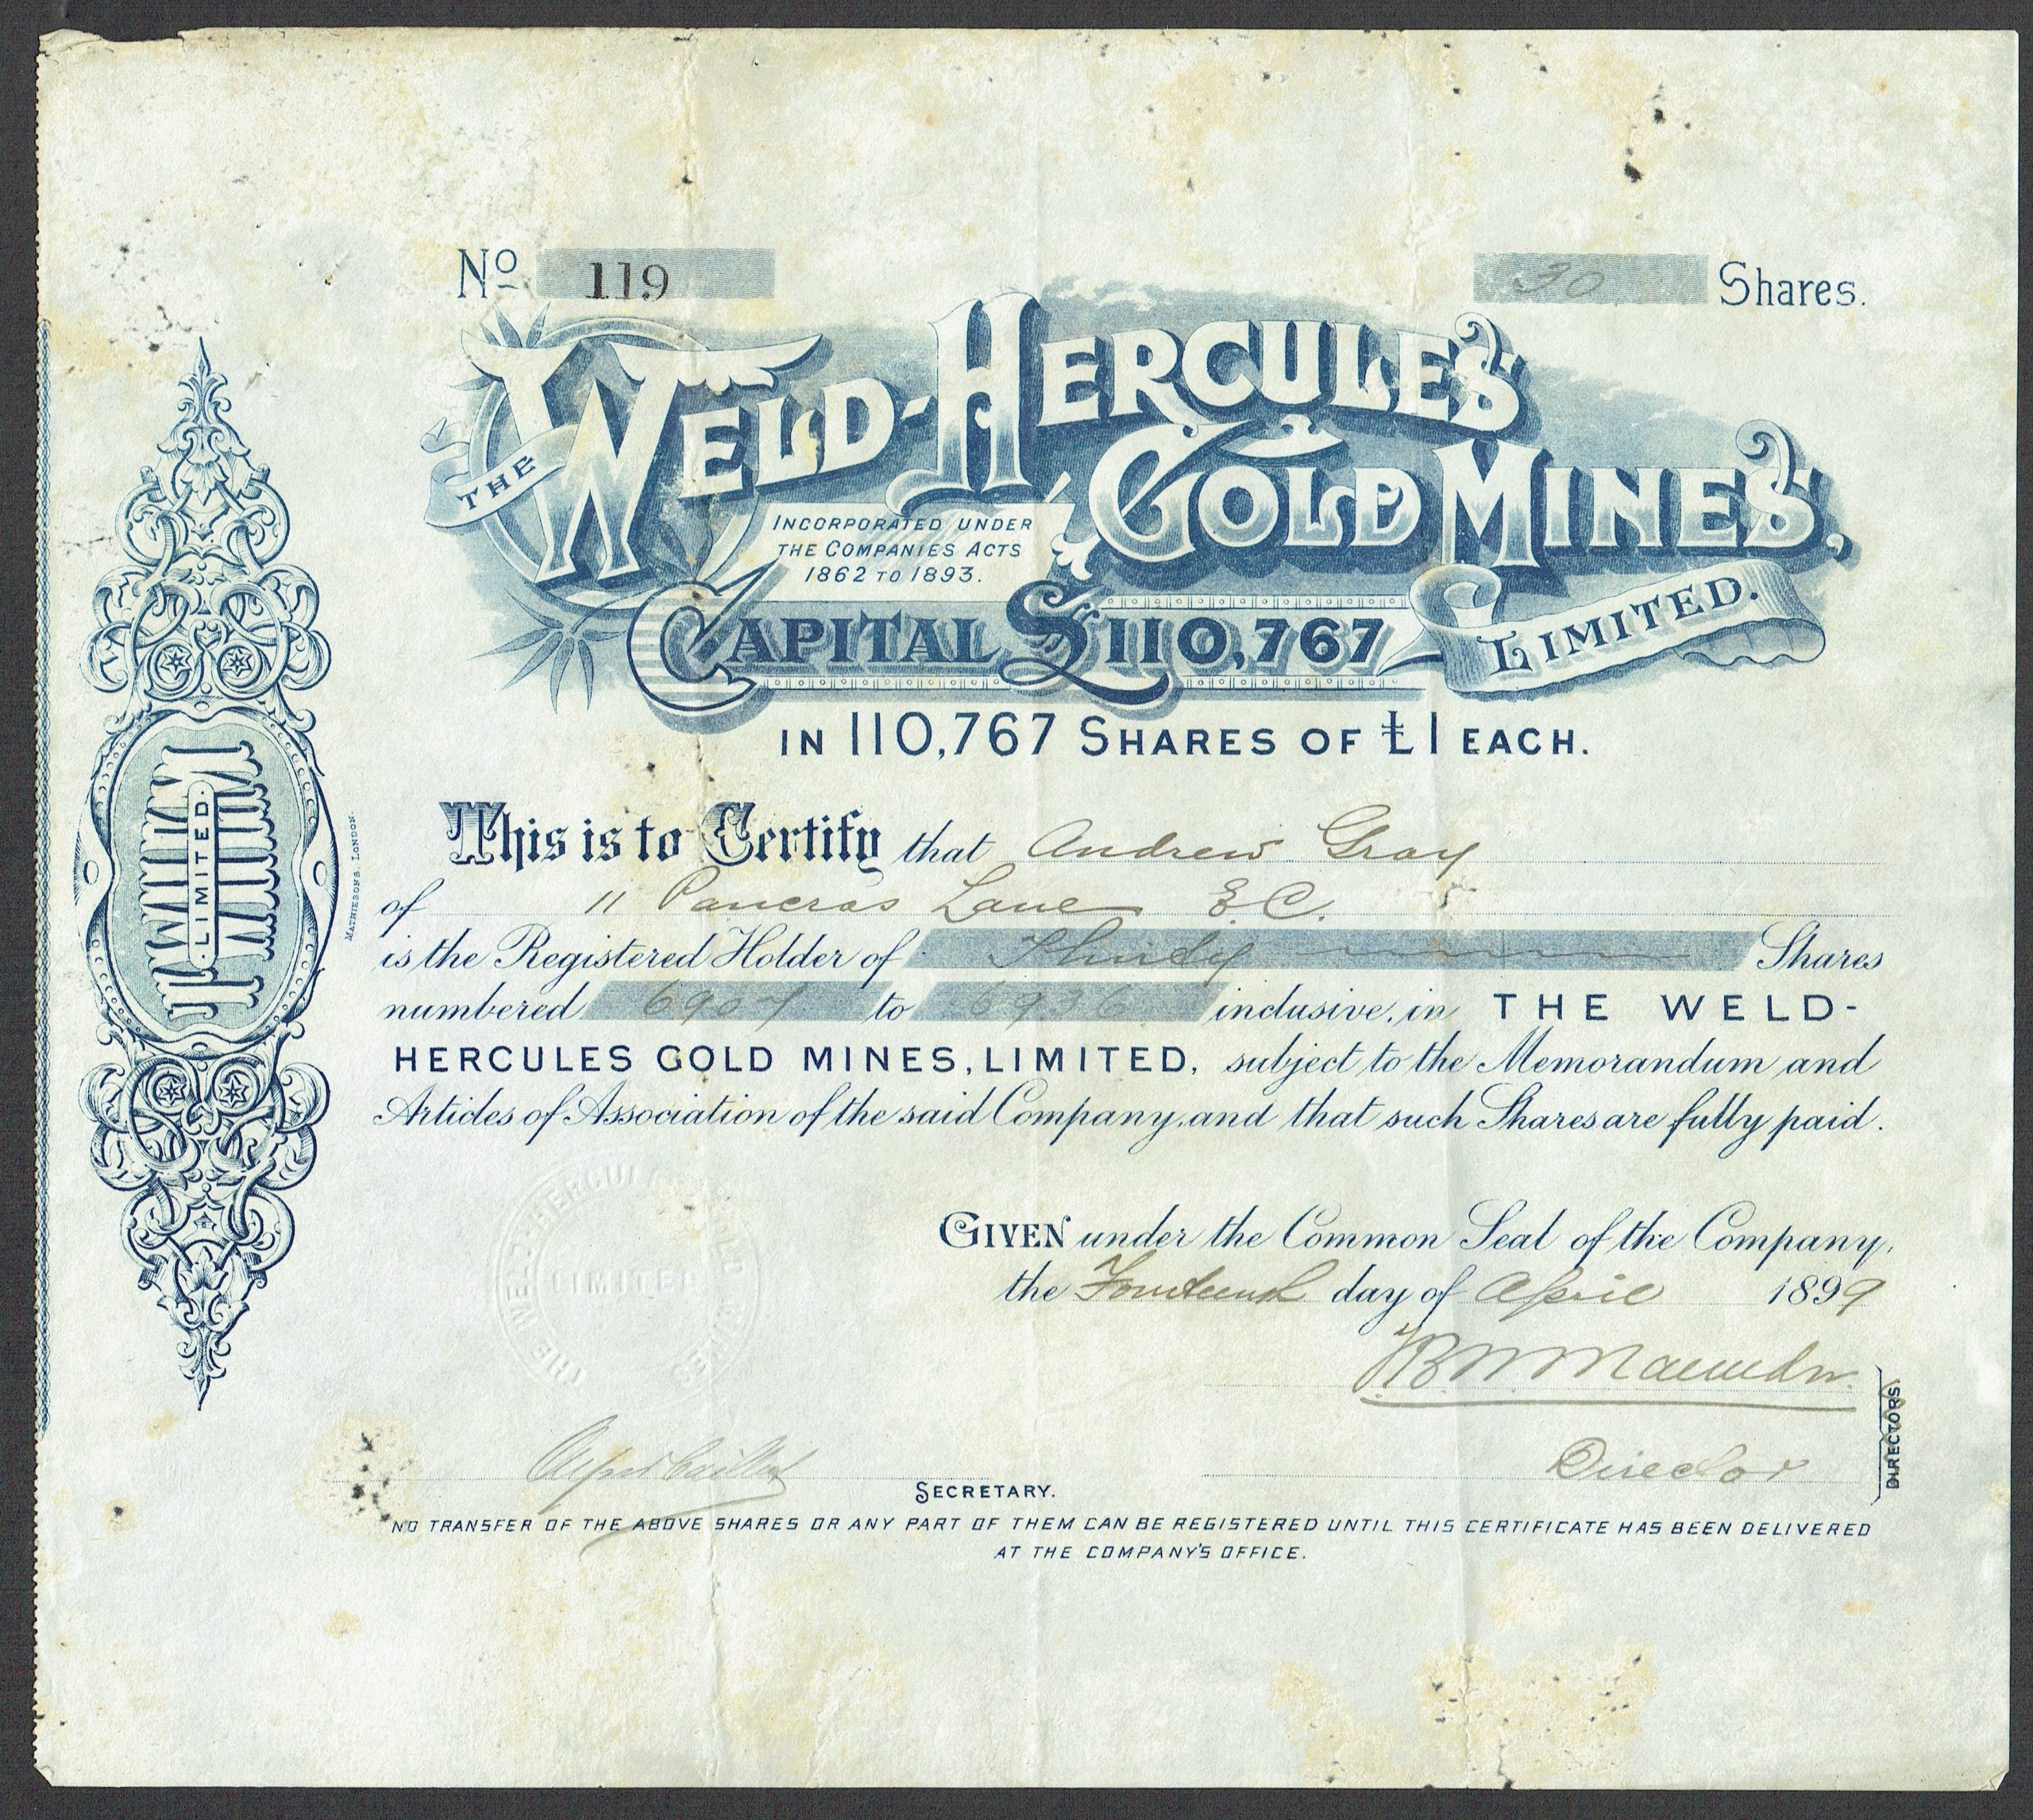 No 119
30 Shares.
THE WELD-HERCULES
GOLD MINES,
LIMITED.
INCORPORATED UNDER
THE COMPANIES ACTS
1862 TO 1893.
CAPITAL £110,767
IN 110,767 SHARES OF £1 EACH.
This is to Certify that Andrew Gray
of 11 Pancras Lane E.C.
is the Registered Holder of Thirty Shares
numbered 6907 to 6936 inclusive, in THE WELD-
HERCULES GOLD MINES, LIMITED, subject to the Memorandum and
Articles of Association of the said Company, and that such Shares are fully paid.
GIVEN under the Common Seal of the Company,
the Fourteenth day of April 1899
Director
DIRECTORS
SECRETARY.
NO TRANSFER OF THE ABOVE SHARES OR ANY PART OF THEM CAN BE REGISTERED UNTIL THIS CERTIFICATE HAS BEEN DELIVERED
AT THE COMPANY'S OFFICE.
LIMITED.
MATHIESONS, LONDON.
THE WELD-HERCULES GOLD MINES
LIMITED